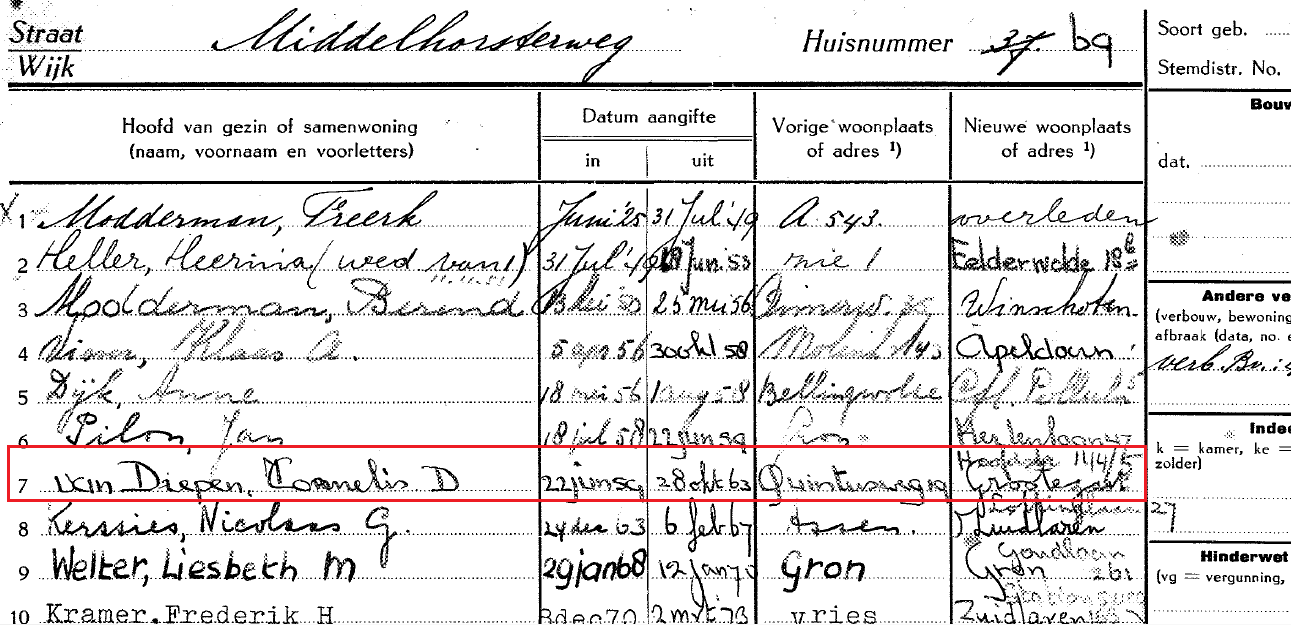 Straat Middelhorsterweg Huisnummer 37. 69 Soort geb.
Wijk Stemdistr. No.
Hoofd van gezin of samenwoning (naam, voornaam en voorletters) Datum aangifte in uit Vorige woonplaats of adres ¹) Nieuwe woonplaats of adres ¹) Bouw
dat.
1 Modderman, Freerk Juni '25 31 Jul '49 A. 543. overleden
2 Heller, Heerina (wed van 1) 31 Jul '49 Jun. 53 nie 1 Eelderwolde 18b
3 Modderman, Berend 53 25 mei 56 Winschoten
Andere ve
(verbouw, bewoning
afbraak (data, no. e
4 Klaas A. 5 apr 56 30 okt 58 Apeldoorn
verb.
5 Dijk, Anne 18 mei 56 1 aug 58 Bellingwolde
6 Pilon, Jan 18 jul 58 22 jun 59 Gron. Hertenlaan 47
Inde
k = kamer, ke =
zolder)
7 van Diepen, Cornelis D 22 jun 59 28 okt 63 Quintusweg 19 Grootegast
8 Kerssies, Nicolaas G. 24 dec 63 6 feb 67 Assen. Zuidlaren
27
Hinderwet
(vg = vergunning,
9 Welter, Liesbeth M 29 jan 68 12 jan 70 Gron Gron
10 Kramer, Frederik H 8dec70 2 mrt 73 vries Zuidlaren